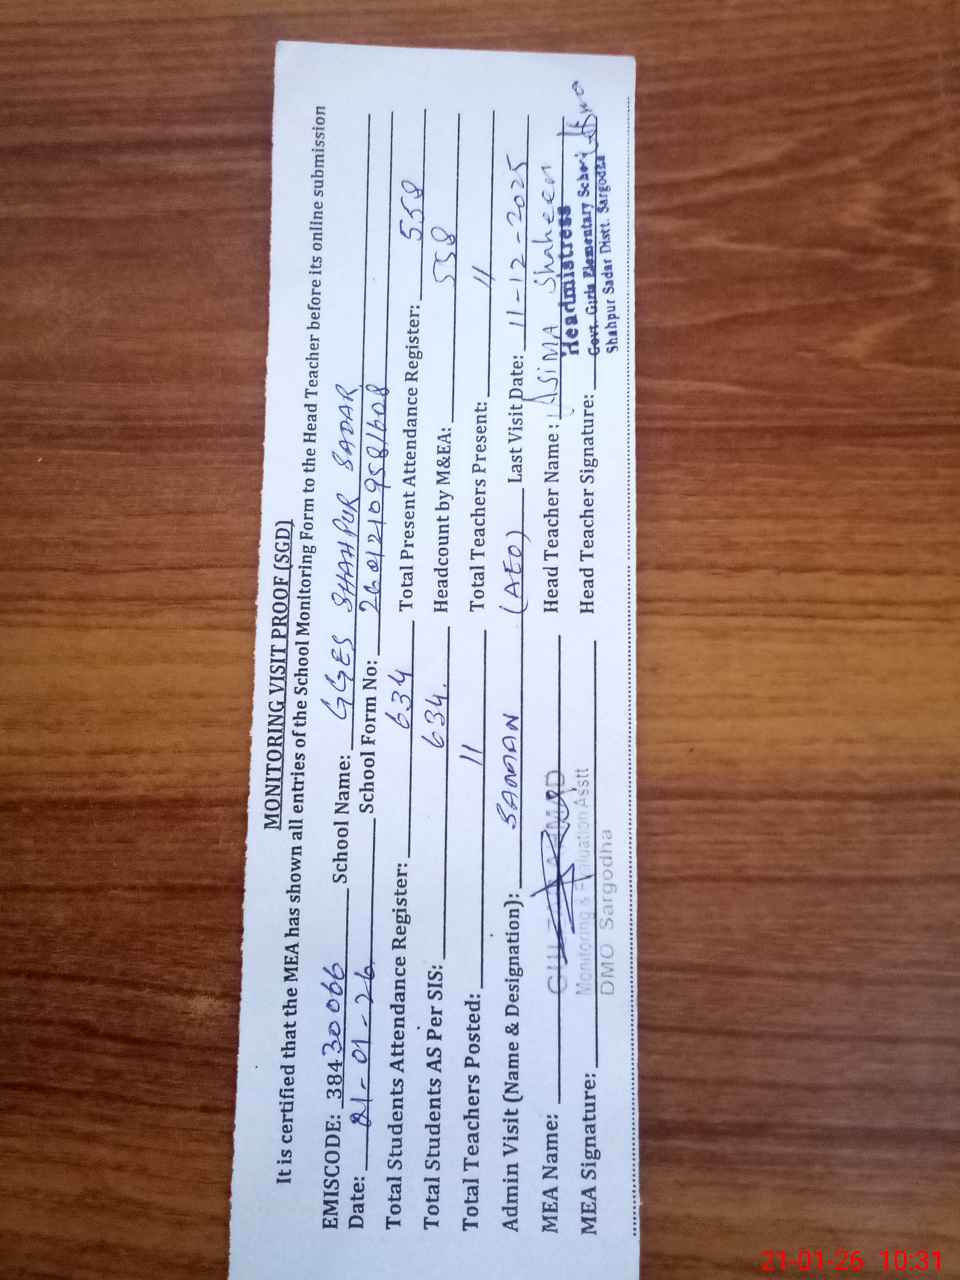 MONITORING VISIT PROOF (SGD)
It is certified that the MEA has shown all entries of the School Monitoring Form to the Head Teacher before its online submission
EMISCODE: 38430066 School Name: GGES SHAHPUR SADAR
Date: 21-01-26 School Form No: 26012109581608
Total Students Attendance Register: 634 Total Present Attendance Register: 558
Total Students AS Per SIS: 634. Headcount by M&EA: 558
Total Teachers Posted: 11 Total Teachers Present: 11
Admin Visit (Name & Designation): SAMAN (AEO) Last Visit Date: 11-12-2025
MEA Name: Head Teacher Name: ASIMA Shaheen
Headmistress
MEA Signature: Monitoring & Evaluation Asstt Head Teacher Signature: Govt. Girls Elementary School
DMO Sargodha Shahpur Sadar Distt. Sargodha
21-01-26 10:31